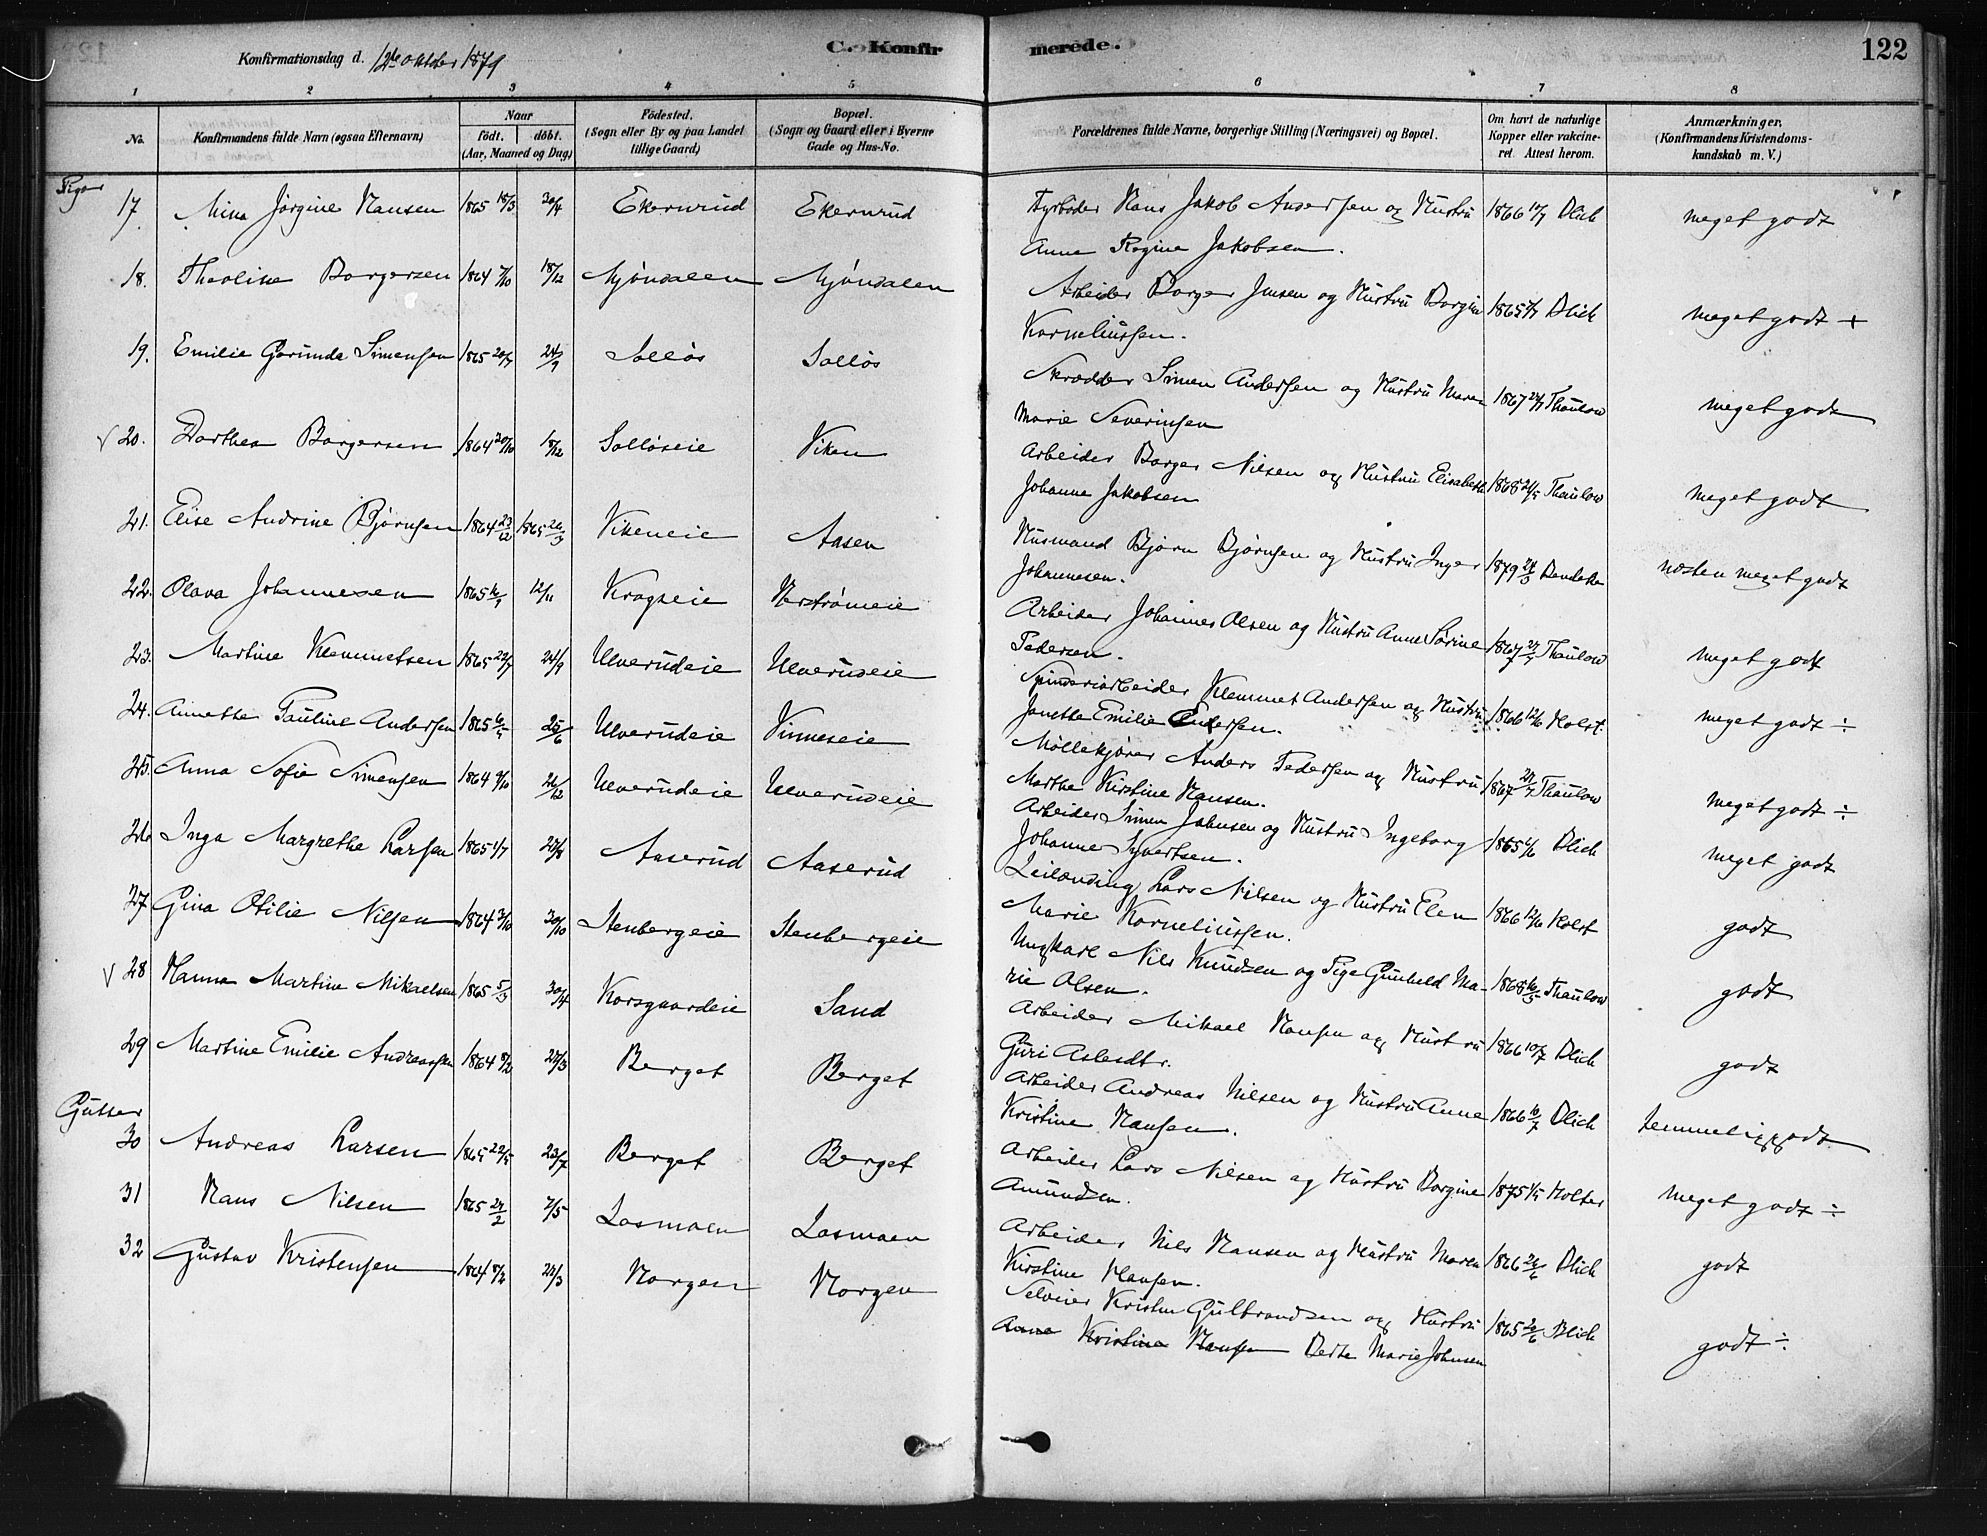 Konfirmationsdag d. 12te oktober 1879
C. Konfirmerede.
122
1 2 3 4 5 6 7 8
No. Konfirmandens fulde Navn (ogsaa Efternavn) Naar født. døbt. (Aar, Maaned og Dag) Fødested. (Sogn eller By og paa Landet tillige Gaard) Bopæl. (Sogn og Gaard eller i Byerne Gade og Hus-No. Forældrenes fulde Navne, borgerlige Stilling (Næringsvei) og Bopæl. Om havt de naturlige Kopper eller vakcineret. Attest herom. Anmærkninger, (Konfirmandens Kristendomskundskab m. V.)
Piger
17. Mina Jørgine Hansen 1865 18/3 30/4 Ekernrud Ekernrud Fyrbøder Hans Jakob Andersen og Hustru 1866 17/7 Blich meget godt
Anne Regine Jakobsen.
18. Theoline Borgersen 1864 7/10 18/12 Mjøndalen Mjøndalen Arbeider Borger Jensen og Hustru Borgine 1865 4/7 Blich meget godt +
Korneliussen.
19. Emilie Gerunda Simensen 1865 20/7 24/9 Solløs Solløs Skrædder Simen Andersen og Hustru Maren 1867 24/7 Thaulow meget godt
Marie Severinsen
20. Dorthea Borgersen 1864 20/10 18/12 Solløseie Viken Arbeider Borger Nilsen og Hustru Elisabeth 1868 21/5 Thaulow meget godt
Johanne Jakobsen
21. Elise Andrine Bjørnsen 1864 23/12 1865 26/3 Vikeneie Aasen Husmand Bjørn Bjørnsen og Hustru Inger 1879 24/3 Bendeke næsten meget godt
Johannesen.
22. Olava Johannesen 1865 16/9 12/11 Krogseie Nerstrømeie Arbeider Johannes Olsen og Hustru Anne Sørine 1867 27/7 Thaulow meget godt
Pedersen.
23. Martine Klemmetsen 1865 22/7 24/9 Ulverudeie Ulverudeie Spinderiarbeider Klemmet Andersen og Hustru 1866 12/6 Holst. meget godt ÷
Janetta Emilie Andersen.
24. Annette Pauline Andersen 1865 6/4 25/6 Ulverudeie Vinneseie Møllekjører Anders Pedersen og Hustru 1867 27/7 Thaulow meget godt ÷
Marthe Kirstine Hansen.
25. Anna Sofie Simensen 1864 9/10 26/12 Ulverudeie Ulverudeie Arbeider Simen Johnsen og Hustru Ingeborg 1865 6/6 Blich meget godt
Johanne Syvertsen.
26. Inga Margrethe Larsen 1865 1/7 27/8 Aaserud Aaserud Leilænding Lars Nilsen og Hustru Elen 1866 12/6 Holst godt
Marie Korneliussen.
27 Gina Otilie Nilsen 1864 3/10 30/10 Stenbergeie Stenbergeie Ungkarl Nils Knudsen og Pige Gunhild Ma- 1868 16/5 Thaulow godt
rie Olsen.
28 Hanna Martine Mikaelsen 1865 5/3 30/4 Korsgaardeie Sand Arbeider Mikael Hansen og Hustru 1866 10/7 Blich godt
Guri Aslesdtr.
29 Martine Emilie Andreassen 1864 8/2 27/3 Berget Berget Arbeider Andreas Nilsen og Hustru Anne 1866 10/7 Blich temmelig godt
Kristine Hansen.
Gutter
30 Andreas Larsen 1865 22/5 23/7 Berget Berget Arbeider Lars Nilsen og Hustru Borgine 1875 1/5 Holter meget godt ÷
Amundsen.
31 Hans Nilsen 1865 27/2 7/5 Losmoen Losmoen Arbeider Nils Hansen og Hustru Maren 1866 26/6 Blich godt
Kirstine Hansen.
32 Gustav Kristensen 1864 8/2 27/3 Horgen Horgen Selveier Kristen Gulbrandsen og Hustru 1865 26/6 Blich godt ÷
Anne Kristine Hansen Berte Marie Johnsen